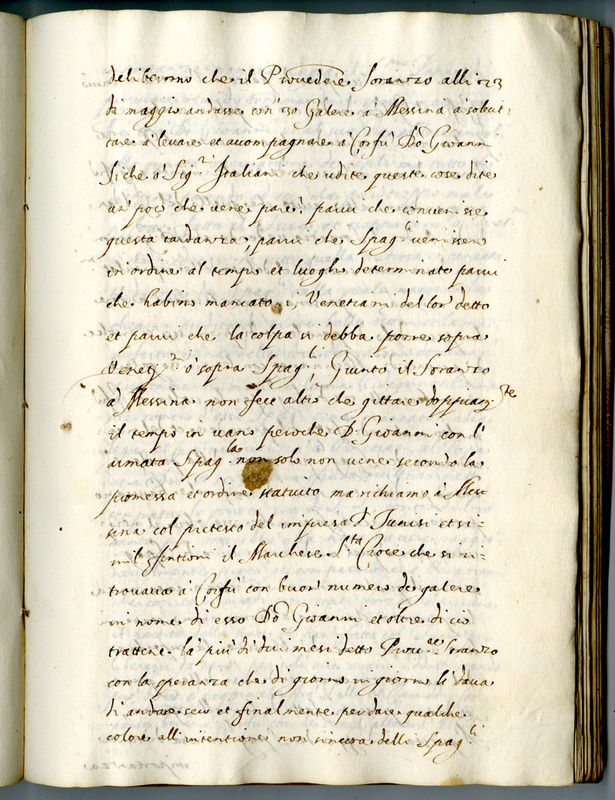 deliberorno che il Provedere Soranzo alli 23
di maggio andasse con 30 Galere à Messina à solecit-
tare à levare et accompagnare à Corfù Do Giovanni
siche ò Sigri Italiani che udite queste cose dite
un poco che vene pare? parvi che convenisse
questa tardanza, parvi che Spagli venissero
in ordine al tempo et luogho determinato parvi
che habino mancato i, Venetiani del lor detto
et parvi che la colpa si debba porre sopra
Veneti ò sopra Spagli, Giunto il Soranzo
à Messina non fece altro che gittare doppiamte
il tempo in vano peroche D. Giovanni con l'
armata Spagla non solo non vene secondo la
promessa et ordine statuito ma richiamo à Mes-
sina col pretesto del impresa di Tunisi et si-
mil fintioni il Marchese Sta Croce che si ri-
trovava à Corfù con buon numero de galere
in nome di esso Do Giovanni et oltre di ciò
trattene là più di dui mesi detto Prove Soranzo
con la speranza che di giorno in giorno li dava
di andare seco et finalmente per dare qualche
colore all'intentione non sincera delli Spagli
importanza